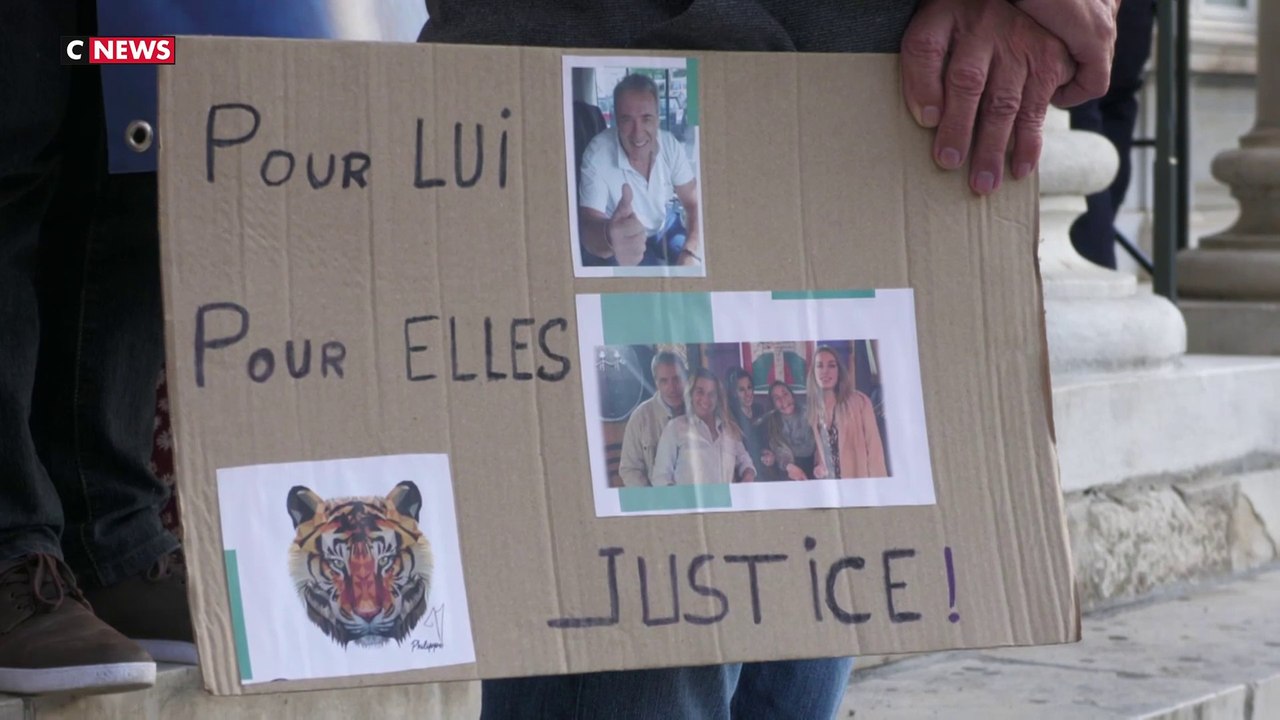 CNEWS
POUR LUi
POUR ELLES
JUSTiCE !
Philippe